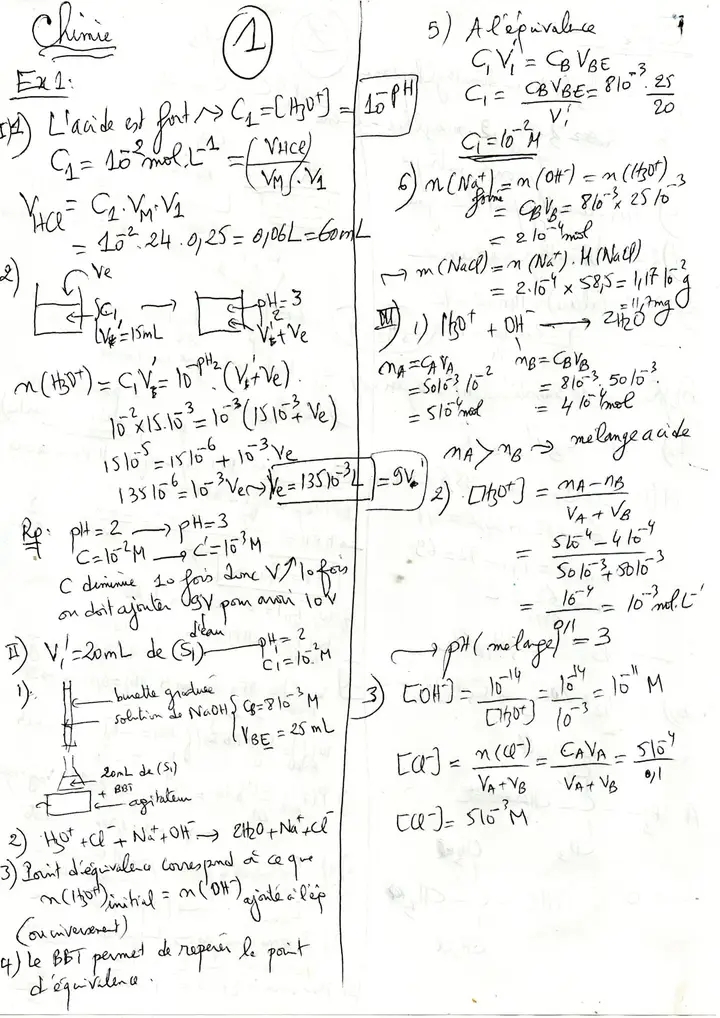 Chimie
1
Ex 1:
I) 1) L'acide est fort ⇝ C₁ = [H₃O⁺] = 10^-pH
C₁ = 10⁻² mol.L⁻¹ = (V_HCl / V_M) . V₁
V_HCl = C₁ . V_M . V₁
= 10⁻² . 24 . 0,25 = 0,06L = 60mL
2)
Ve
C₁
V₁' = 15mL
pH = 3
V₁' + Ve
n(H₃O⁺) = C₁V₁' = 10^-pH₂ . (V₁' + Ve)
10⁻² × 15.10⁻³ = 10⁻³ (15 10⁻³ + Ve)
15 10⁻⁵ = 15 10⁻⁶ + 10⁻³ . Ve
135 10⁻⁶ = 10⁻³ Ve ⇝ Ve = 135 10⁻³ L = 9V₁'
Rq: pH = 2 → pH = 3
C = 10⁻² M → C' = 10⁻³ M
C diminue 10 fois donc V ↗ 10 fois
on doit ajouter 9V pour avoir 10V
d'eau
II) V₁' = 20mL de (S₁) pH₁ = 2
C₁ = 10⁻² M
1)
burette graduée
solution de NaOH { C_B = 8 10⁻³ M
V_BE = 25 mL
20mL de (S₁)
+ BBT
agitateur
2) H₃O⁺ + Cl⁻ + Na⁺ + OH⁻ → 2H₂O + Na⁺ + Cl⁻
3) Point d'équivalence correspond à ce que
n(H₃O⁺) initial = n(OH⁻) ajouté à l'éq
(ou inversement)
4) Le BBT permet de repérer le point
d'équivalence.
5) A l'équivalence
C₁V₁' = C_B V_BE
C₁ = C_B V_BE / V₁' = 8 10⁻³ . 25 / 20
C₁ = 10⁻² M
6) n(Na⁺) = n(OH⁻) = n(H₃O⁺)
= C_B V_B = 8 10⁻³ × 25 10⁻³
= 2 10⁻⁴ mol
⇝ m(NaCl) = n(Na⁺) . M(NaCl)
= 2.10⁻⁴ × 58,5 = 1,17 10⁻² g
= 11,7mg
III) 1) H₃O⁺ + OH⁻ → 2H₂O
n_A = C_A V_A n_B = C_B V_B
= 50 10⁻³ . 10⁻² = 8 10⁻³ . 50 10⁻³
= 5 10⁻⁴ mol = 4 10⁻⁴ mol
n_A > n_B → mélange acide
2) [H₃O⁺] = (n_A - n_B) / (V_A + V_B)
= (5 10⁻⁴ - 4 10⁻⁴) / (50 10⁻³ + 50 10⁻³)
= 10⁻⁴ / 0,1 = 10⁻³ mol.L⁻¹
→ pH (mélange) = 3
3) [OH⁻] = 10⁻¹⁴ / [H₃O⁺] = 10⁻¹⁴ / 10⁻³ = 10⁻¹¹ M
[Cl⁻] = n(Cl⁻) / (V_A + V_B) = C_A V_A / (V_A + V_B) = 5 10⁻⁴ / 0,1
[Cl⁻] = 5 10⁻³ M